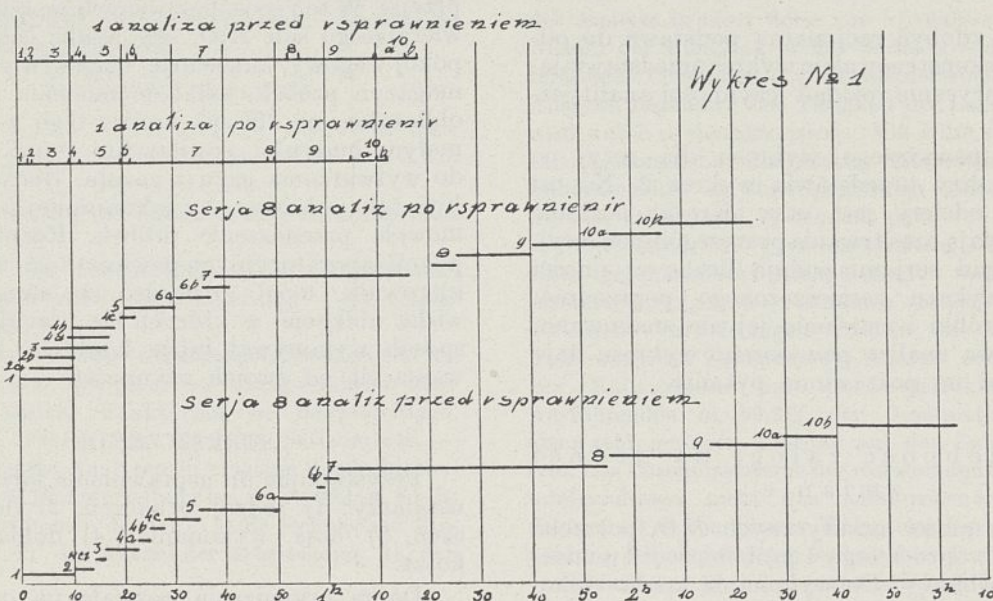 1 analiza przed vsprawnieniem
1 2 3 4 5 6 7 8 9 10 a b
Wykres № 1
1 analiza po vsprawnienir
1 2 3 4 5 6 7 8 9 10 a b
Serja 8 analiz po vsprawnienir
10b
10a
9
8
7
6b
6a
5
4c
4b
4a
3
2b
2a
1
Serja 8 analiz przed vsprawnieniem
10b
10a
9
8
7
6b
6a
5
4c
4b
4a
3
2
1
0 10 20 30 40 50 1h 10 20 30 40 50 2h 10 20 30 40 50 3h 10